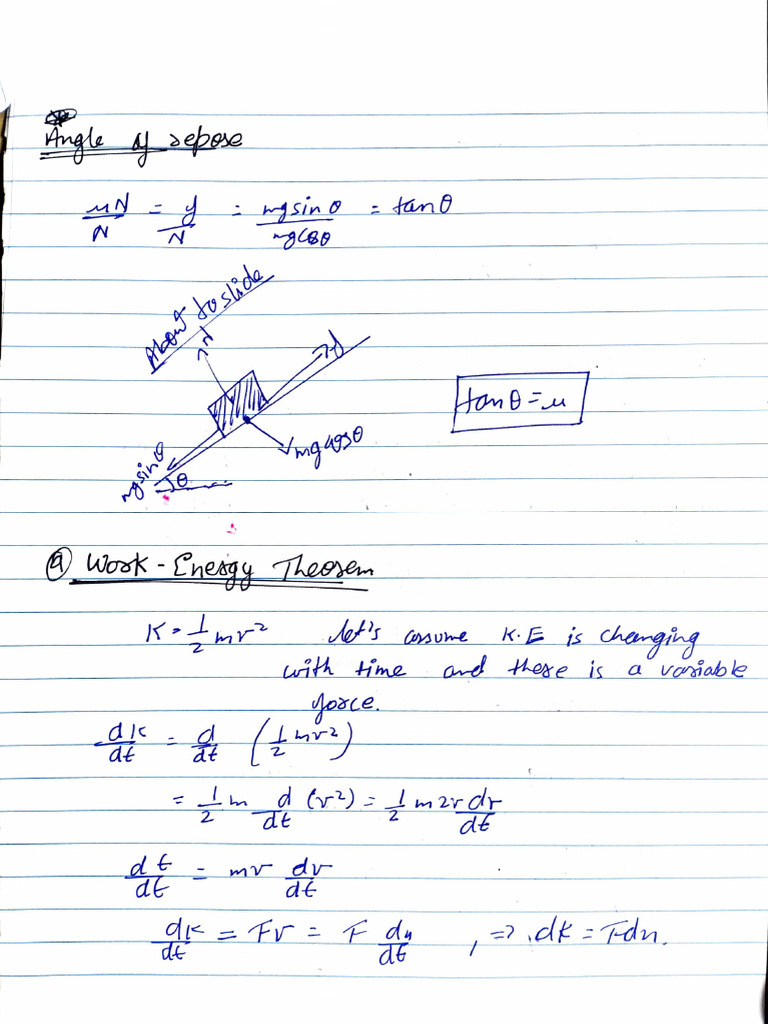 Angle of repose
μN/N = f/N = mg sin θ/mg cos θ = tan θ
About to slide
N
f
tan θ = μ
mg cos θ
mg sin θ
θ
9 Work - Energy Theorem
K = 1/2 mv² let's assume K.E is changing
with time and there is a variable
force.
dK/dt = d/dt (1/2 mv²)
= 1/2 m d/dt (v²) = 1/2 m 2v dv/dt
dt/dt = mv dv/dt
dK/dt = Fv = F dx/dt , => dK = Fdx.